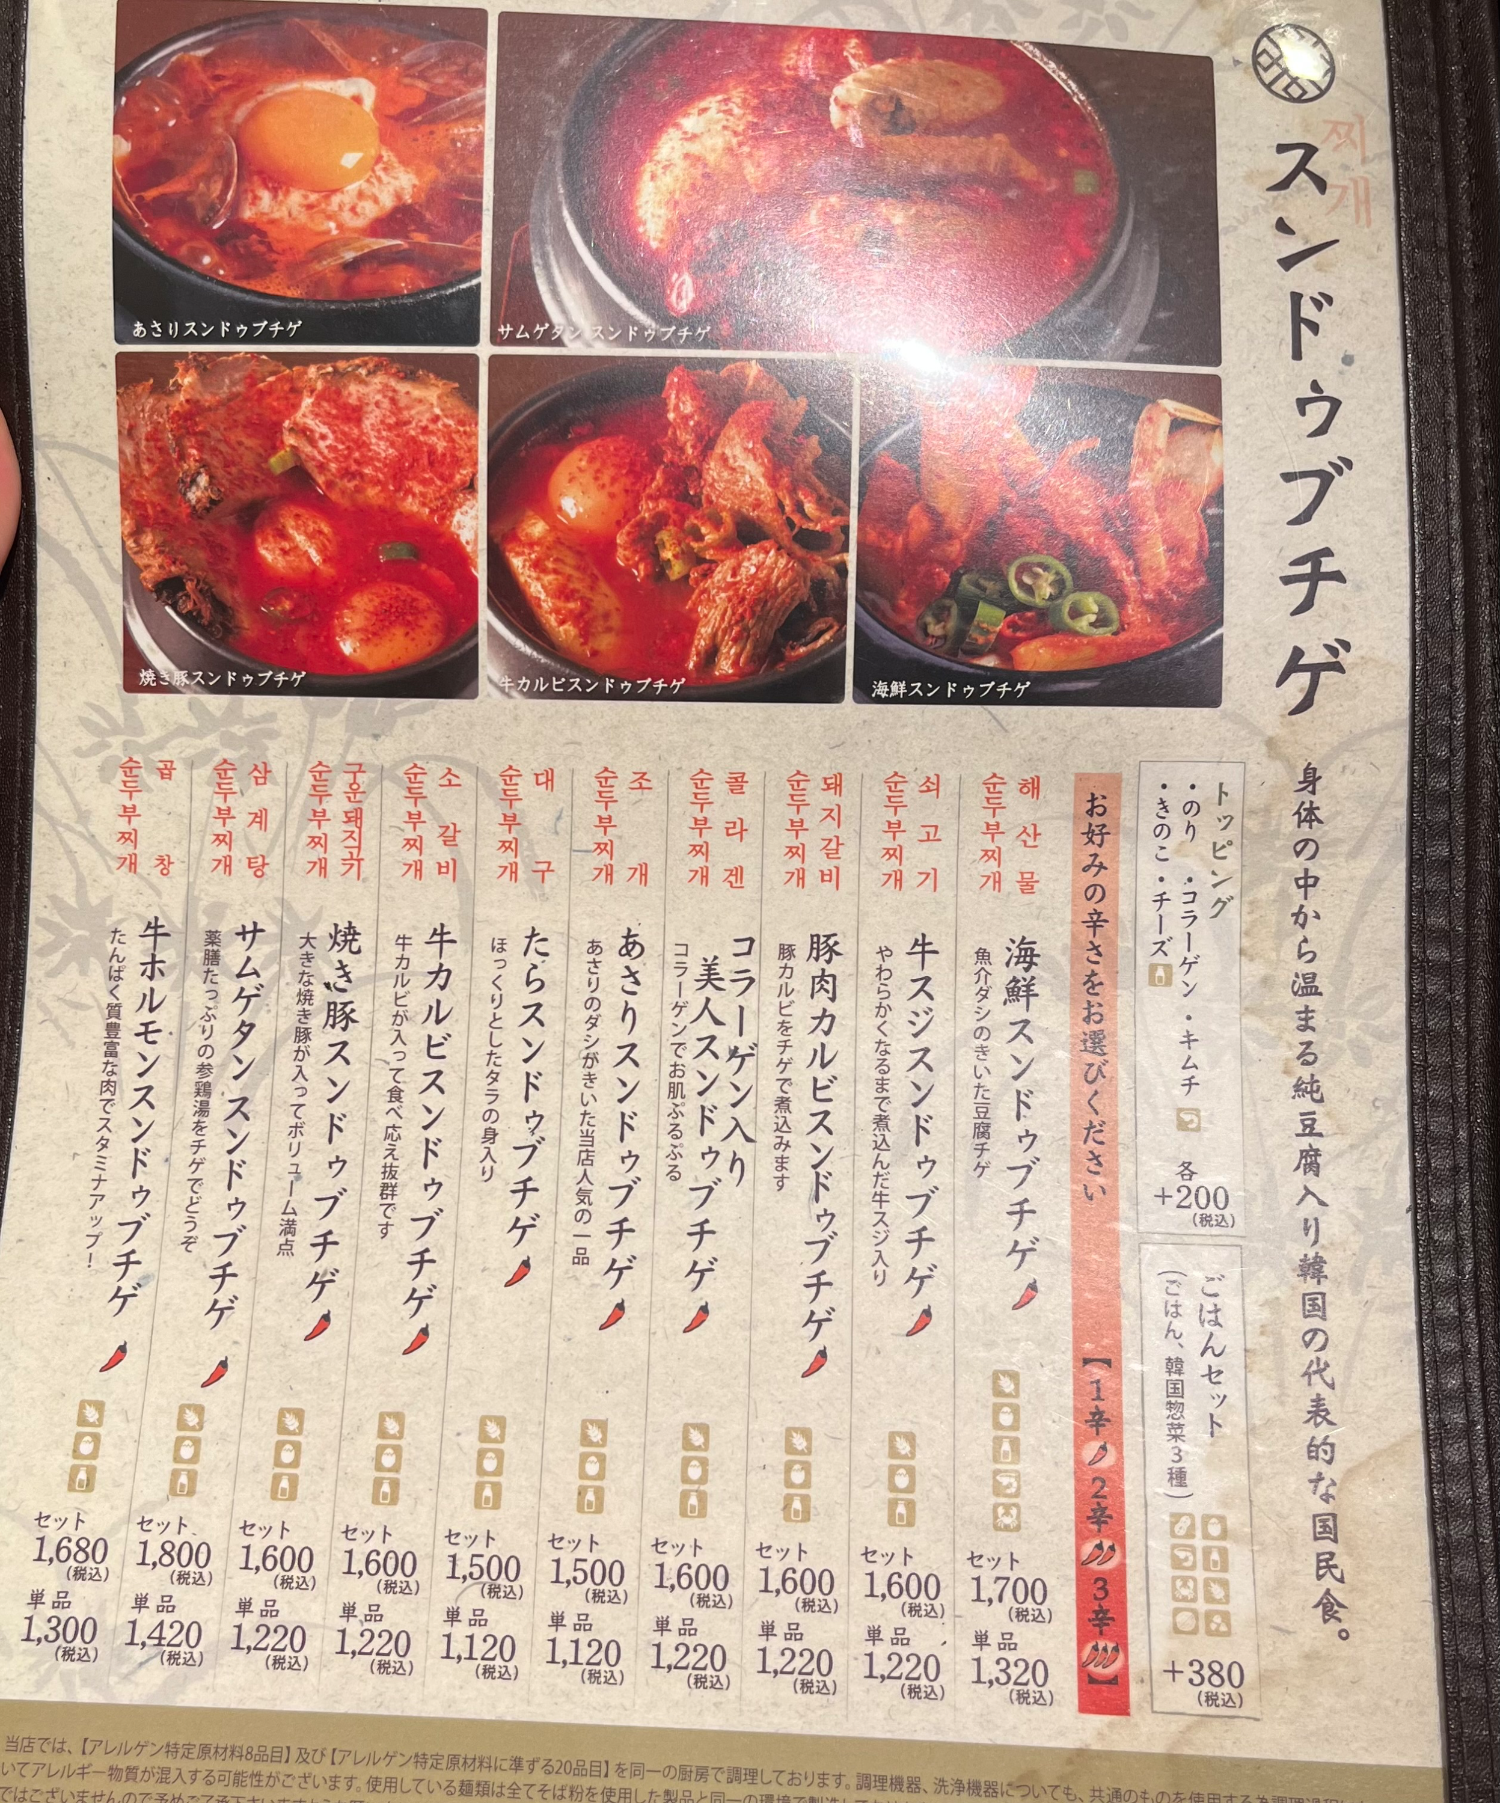 찌개
スンドゥブチゲ
身体の中から温まる純豆腐入り韓国の代表的な国民食。
あさりスンドゥブチゲ
サムゲタン スンドゥブチゲ
焼き豚スンドゥブチゲ
牛カルビスンドゥブチゲ
海鮮スンドゥブチゲ
トッピング
・のり ・コラーゲン ・キムチ
・きのこ ・チーズ
各
+200
(税込)
ごはんセット
(ごはん、韓国惣菜3種)
+380
(税込)
お好みの辛さをお選びください 【1辛 2辛 3辛】
해산물
순두부찌개
海鮮スンドゥブチゲ
魚介ダシのきいた豆腐チゲ
セット
1,700
(税込)
単品
1,320
(税込)
쇠고기
순두부찌개
牛スジスンドゥブチゲ
やわらかくなるまで煮込んだ牛スジ入り
セット
1,600
(税込)
単品
1,220
(税込)
돼지갈비
순두부찌개
豚肉カルビスンドゥブチゲ
豚カルビをチゲで煮込みます
セット
1,600
(税込)
単品
1,220
(税込)
콜라겐
순두부찌개
コラーゲン入り
美人スンドゥブチゲ
コラーゲンでお肌ぷるぷる
セット
1,600
(税込)
単品
1,220
(税込)
조개
순두부찌개
あさりスンドゥブチゲ
あさりのダシがきいた当店人気の一品
セット
1,500
(税込)
単品
1,120
(税込)
대구
순두부찌개
たらスンドゥブチゲ
ほっくりとしたタラの身入り
セット
1,500
(税込)
単品
1,120
(税込)
소갈비
순두부찌개
牛カルビスンドゥブチゲ
牛カルビが入って食べ応え抜群です
セット
1,600
(税込)
単品
1,220
(税込)
구운돼지고기
순두부찌개
焼き豚スンドゥブチゲ
大きな焼き豚が入ってボリューム満点
セット
1,600
(税込)
単品
1,220
(税込)
삼계탕
순두부찌개
サムゲタン スンドゥブチゲ
薬膳たっぷりの参鶏湯をチゲでどうぞ
セット
1,800
(税込)
単品
1,420
(税込)
곱창
순두부찌개
牛ホルモンスンドゥブチゲ
たんぱく質豊富な肉でスタミナアップ！
セット
1,680
(税込)
単品
1,300
(税込)
当店では、【アレルゲン特定原材料8品目】及び【アレルゲン特定原材料に準ずる20品目】を同一の厨房で調理しております。調理機器、洗浄機器についても、共通のものを使用する為調理過程に
いてアレルギー物質が混入する可能性がございます。使用している麺類は全てそば粉を使用した製品と同一の環境で製造して